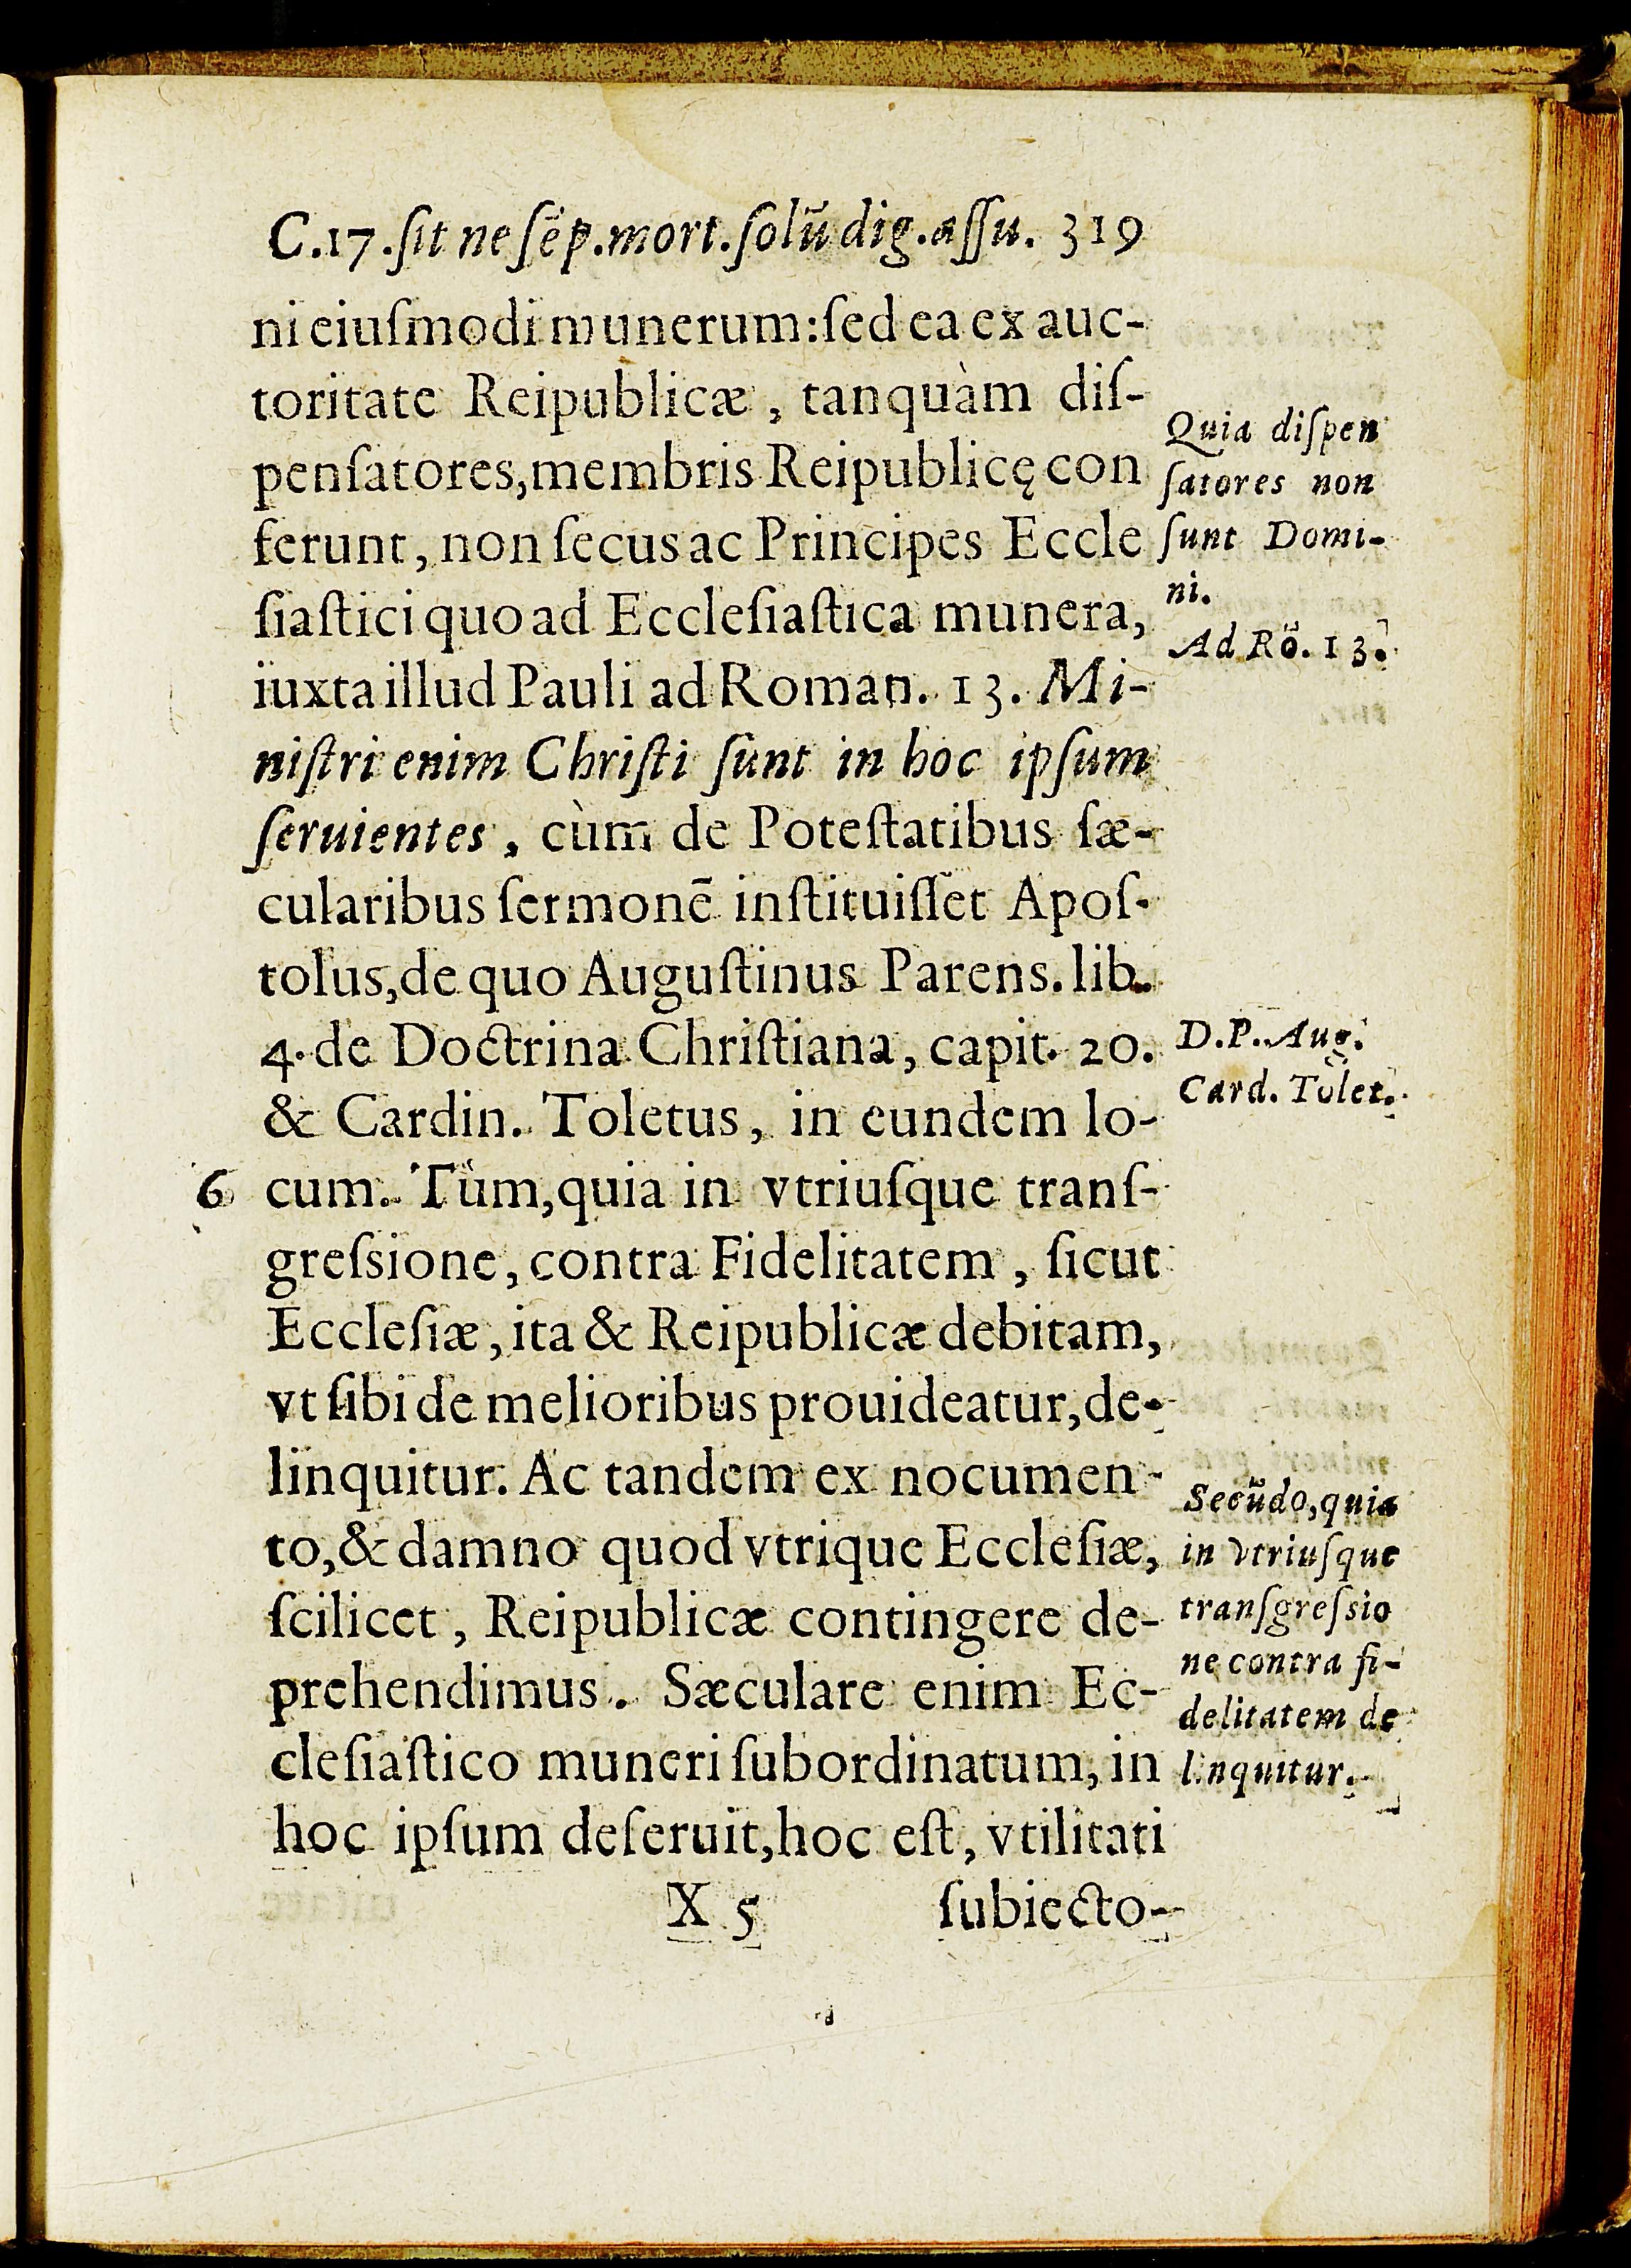 C.17.ſit ne ſēp.mort.ſolū dig.aſſu. 319
ni eiuſmodi munerum:ſed ea ex auc-
toritate Reipublicæ, tanquàm diſ-
penſatores,membris Reipublicę con
ferunt, non ſecus ac Principes Eccle
ſiaſtici quo ad Eccleſiaſtica munera,
iuxta illud Pauli ad Roman. 13. Mi-
niſtri enim Chriſti ſunt in hoc ipſum
ſeruientes, cùm de Poteſtatibus ſæ-
cularibus ſermonē inſtituiſſet Apoſ-
tolus,de quo Auguſtinus Parens. lib.
4. de Doctrina Chriſtiana, capit. 20.
& Cardin. Toletus, in eundem lo-
6 cum. Tùm,quia in vtriuſque tranſ-
greſsione, contra Fidelitatem, ſicut
Eccleſiæ, ita & Reipublicæ debitam,
vt ſibi de melioribus prouideatur,de-
linquitur. Ac tandem ex nocumen-
to,& damno quod vtrique Eccleſiæ,
ſcilicet, Reipublicæ contingere de-
prehendimus. Sæculare enim Ec-
cleſiaſtico muneri ſubordinatum, in
hoc ipſum deſeruit,hoc eſt, vtilitati
X 5 ſubiecto-
Quia diſpen
ſatores non
ſunt Domi-
ni.
Ad Rō. 13.
D.P.Aug.
Card. Tolet.
Secūdo,quia
in vtriuſque
tranſgreſsio
ne contra fi-
delitatem de
linquitur.